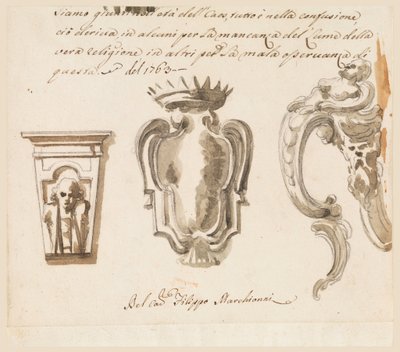 Siamo giunti all'età del Caos, tutto è nella confusione
ciò deriva in alcuni per la mancanza del Lume della
vera religione in altri per la mala osservanza di
questa del 1763
Del Caṽ Filippo Marchionni